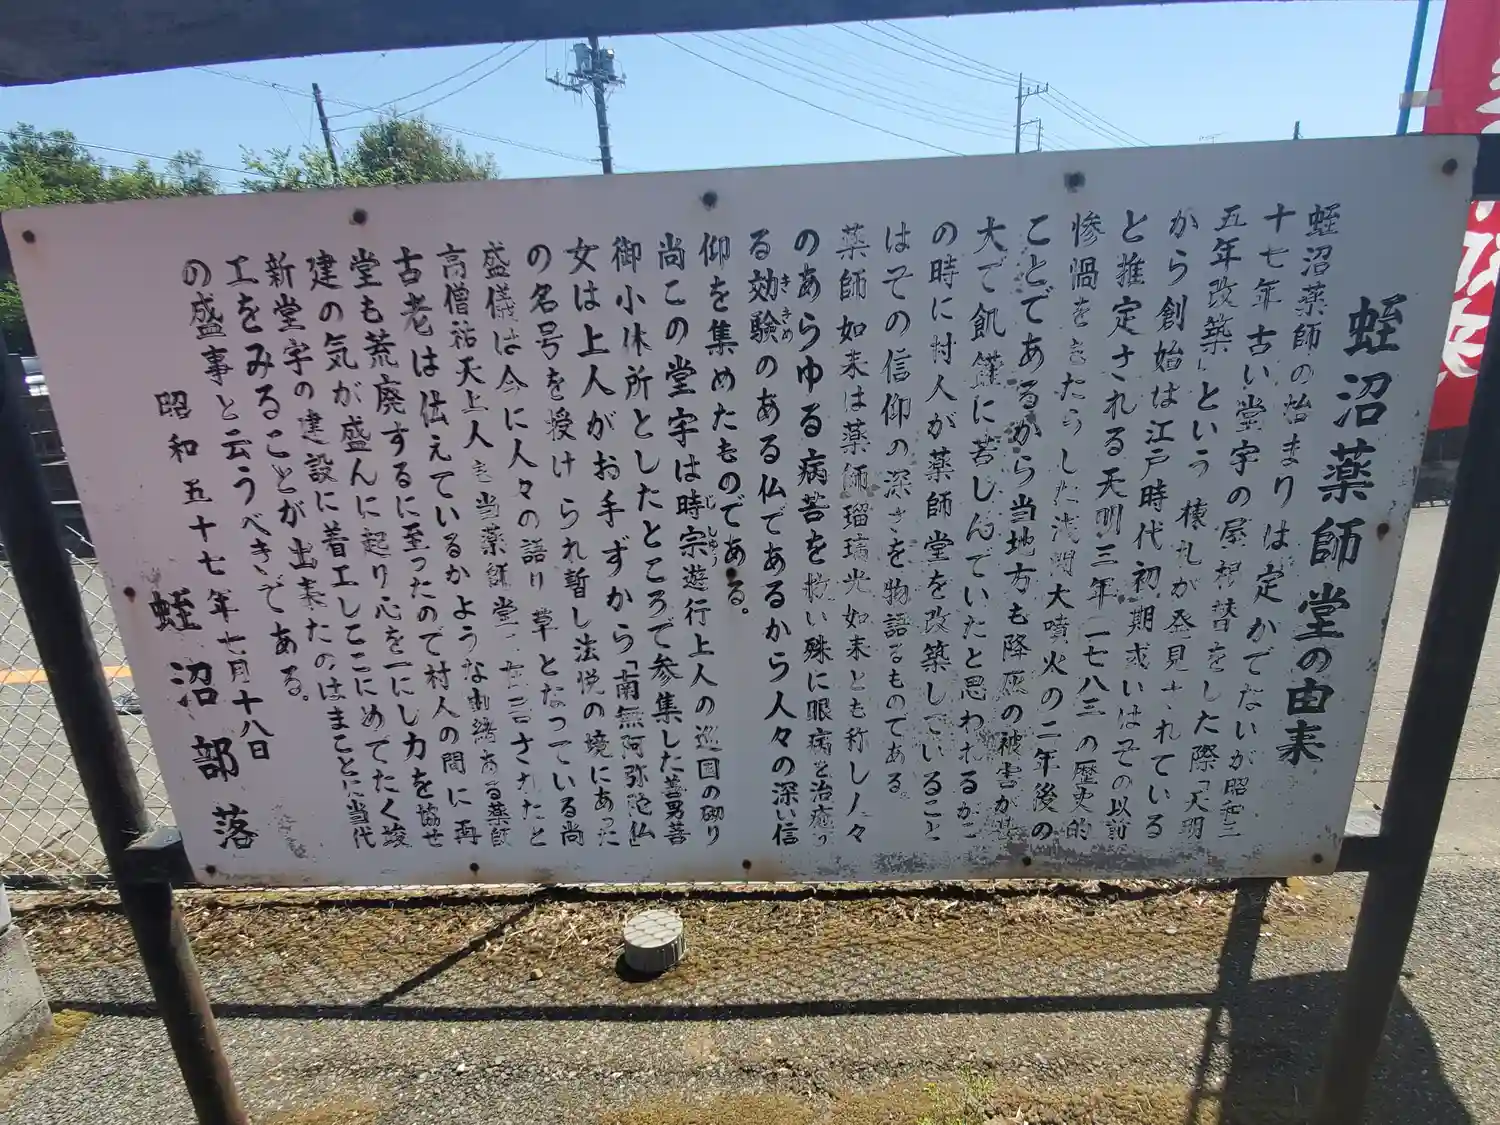 蛭沼薬師堂の由来
蛭沼薬師の始まりは定かでないが昭和三
十七年古い堂宇の屋根替をした際「天明
五年改築」という棟札が発見されている
から創始は江戸時代初期或いはその以前
と推定される天明三年一七八三の歴史的
惨禍をきたらした浅間大噴火の二年後の
ことであるから当地方も降灰の被害が
大で飢饉に苦しんでいたと思われるが
の時に村人が薬師堂を改築していること
はその信仰の深さを物語るものである。
薬師如来は薬師瑠璃光如来とも称し人々
のあらゆる病苦を救い殊に眼病を治癒
る効験のある仏であるから人々の深い信
ききめ
仰を集めたものである。
尚この堂宇は時宗遊行上人の巡国の砌り
じしゅう
御小休所としたところで参集した善男善
女は上人がお手ずから「南無阿弥陀仏」
の名号を授けられ暫し法悦の境にあった
盛儀は今に人々の語り草となっている尚
高僧祐天上人も当薬師堂で
されたと
古老は伝えているかような由緒ある薬師
堂も荒廃するに至ったので村人の間に再
建の気が盛んに起り心を一にし力を協せ
新堂宇の建設に着工しここにめでたく竣
工をみることが出来たのはまことに当代
の盛事と云うべきである。
昭和五十七年七月十八日
蛭沼部落